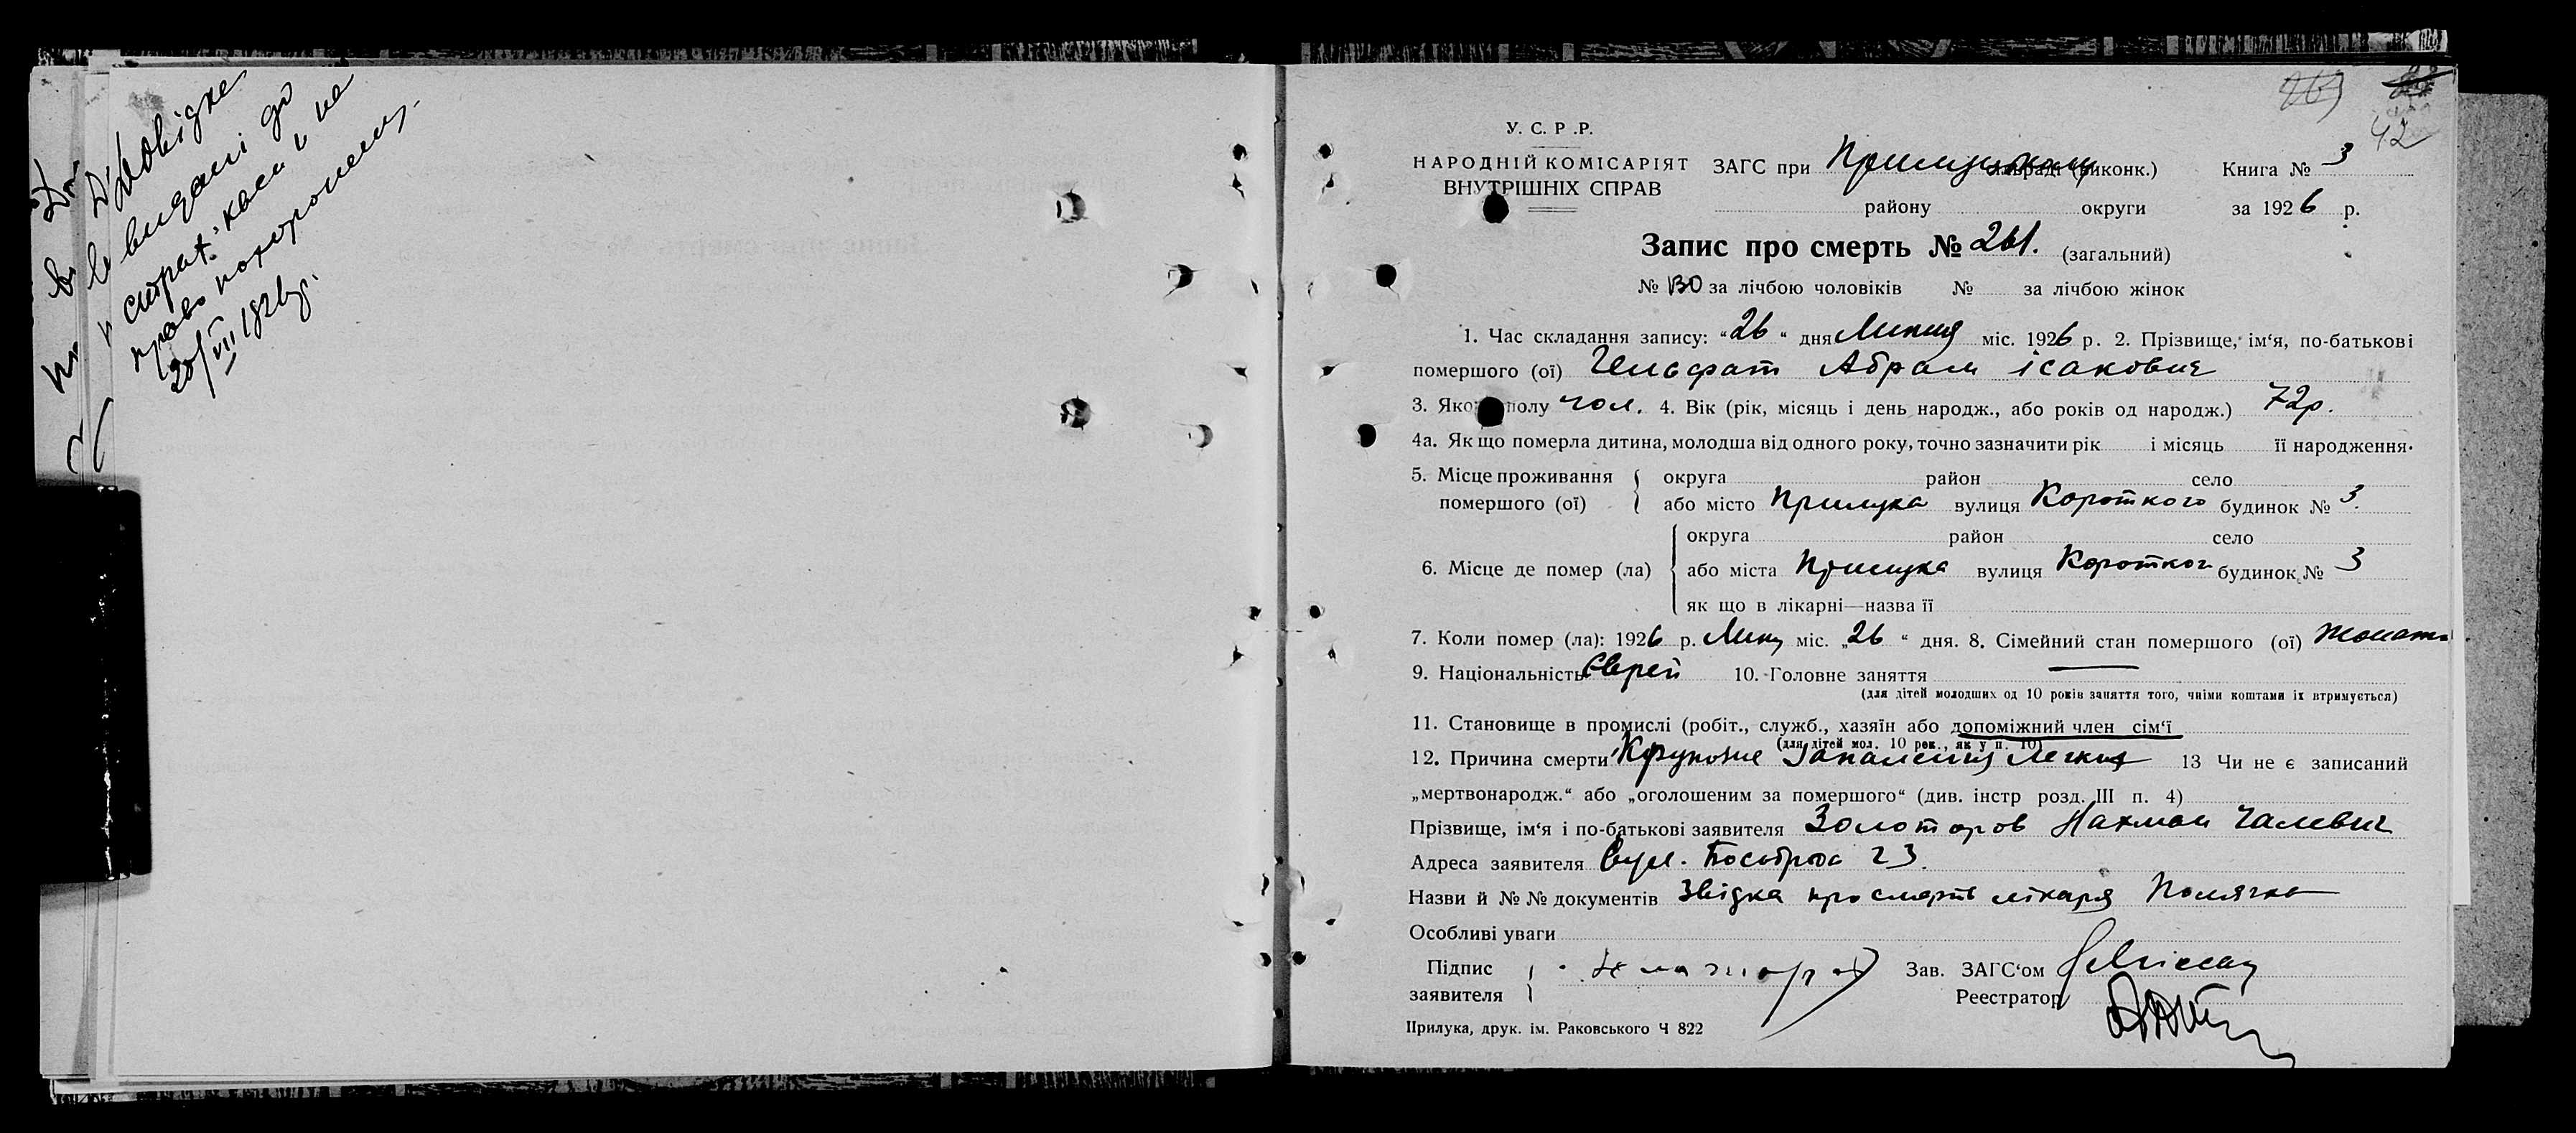 Довідки
видані до
страх. каси и на
право похорошенні.
26/VII 1926 р.
42
У. С. Р .Р.
НАРОДНІЙ КОМІСАРІЯТ ЗАГС при Прилуцькому (виконк.) Книга № 3
ВНУТРІШНІХ СПРАВ
району округи за 1926 р.
Запис про смерть № 261. (загальний)
№ 130 за лічбою чоловіків № за лічбою жінок
1. Час складання запису: “26“ дня Липня міс. 1926 р. 2. Прізвище, ім‘я, по-батькові
померлого (ої) Гельфат Абрам ісакович
3. Яко полу чол. 4. Вік (рік, місяць і день народж., або років од народж.) 72р.
4а. Як що померла дитина, молодша від одного року, точно зазначити рік і місяць її народження.
5. Місце проживання округа район село
помершого (ої) або місто Прилука вулиця Короткого будинок № 3.
округа район село
6. Місце де помер (ла) або міста Прилука вулиця Коротког будинок № 3
як що в лікарні—назва її
7. Коли помер (ла): 1926 р. Липн міс. „26“ дня. 8. Сімейний стан помершого (ої) жонати
9. Національність Єврей 10. Головне заняття —
(для дітей молодших од 10 років заняття того, чиїми коштами їх втримується)
11. Становище в промислі (робіт., служб., хазяїн або допоміжний член сім‘ї
(для дітей мол. 10 рок., як у п. 10)
12. Причина смерти Крупозне Запалення легких 13 Чи не є записаний
„мертвонародж.“ або „оголошеним за померлого“ (див. інстр розд. III п. 4)
Прізвище, ім‘я і по-батькові заявителя Золоторов Нахман
Адреса заявителя вул. 23.
Назви й № № документів Звідка про смерть лікаря
Особливі уваги
Підпис Зав. ЗАГС‘ом
заявителя Реестратор
Прилука, друк. ім. Раковського Ч 822